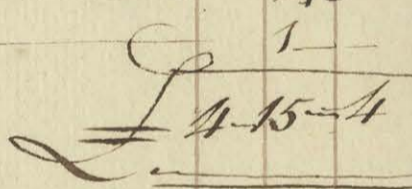 1
£ 4 - 15 - 4